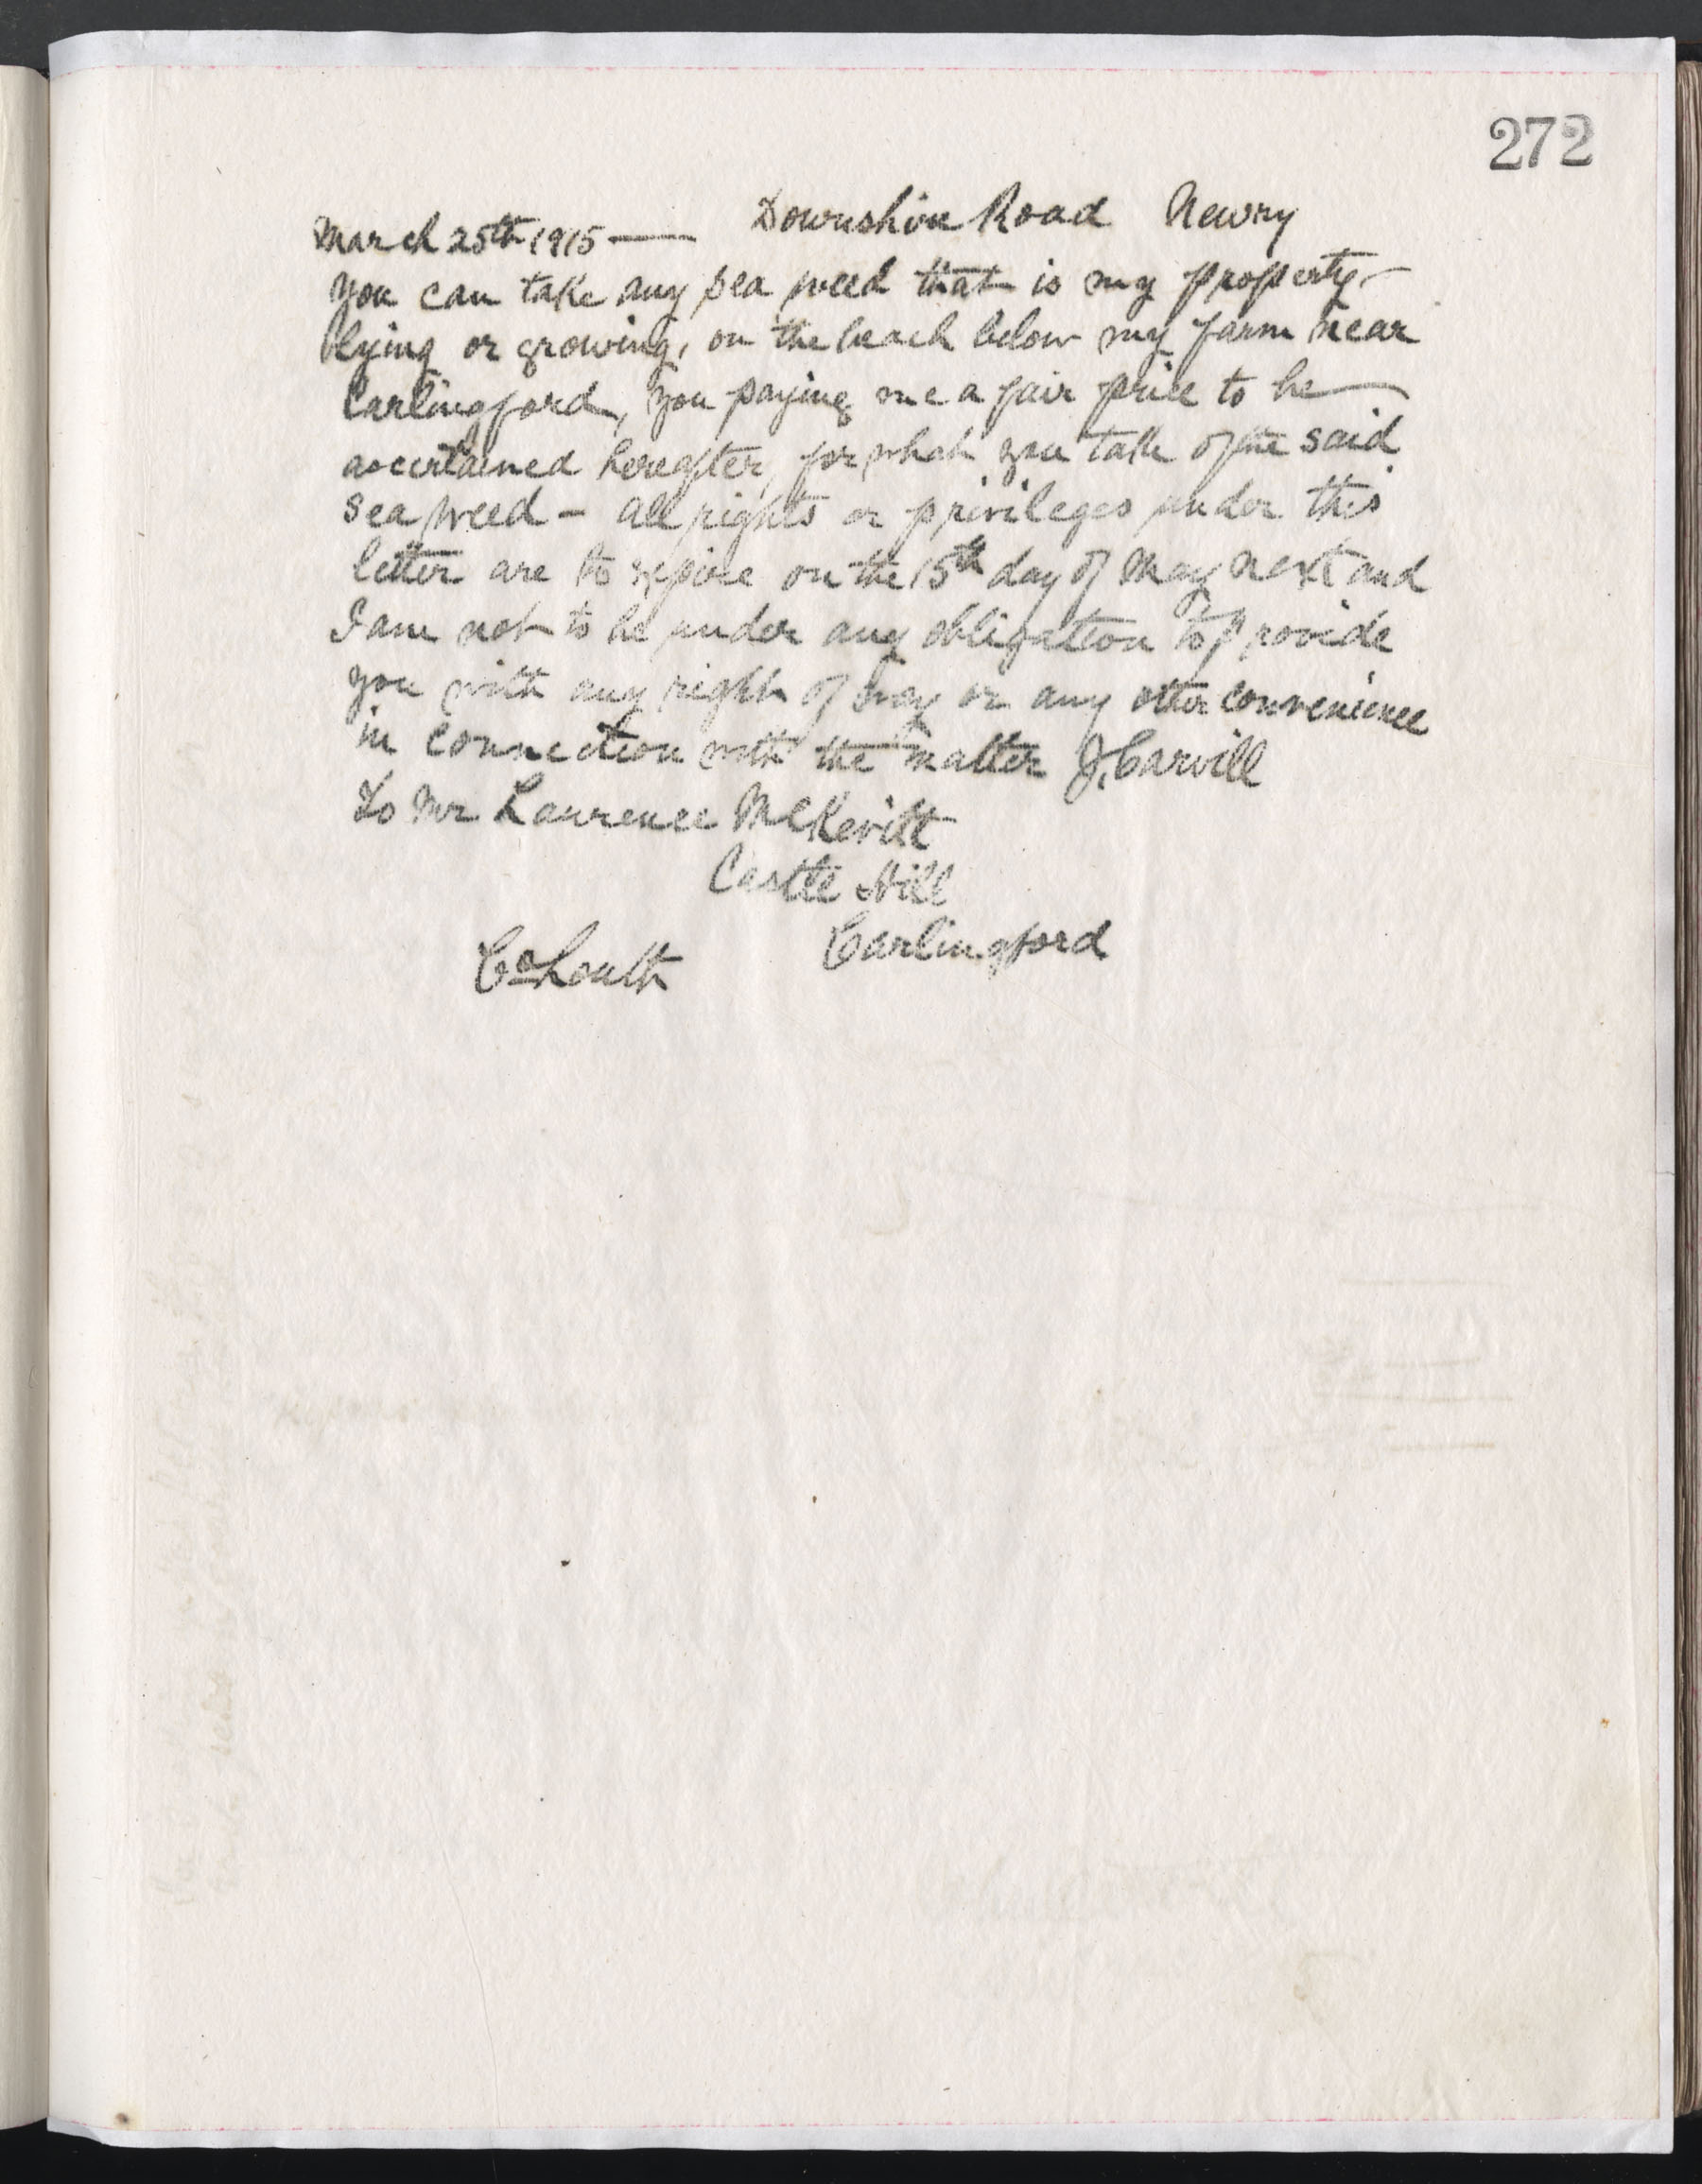 272
March 25th 1915 — Downshire Road Newry
You can take any sea weed that is my property -
lying or growing, on the beach below my farm near
Carlingford, you paying me a fair price to be
ascertained hereafter, for what you take of the said
sea weed - all rights or privileges under this
letter are to expire on the 15th day of May next and
I am not to be under any obligation to provide
you with any right of way or any other convenience
in connection with the matter J. Carvill
To Mr Laurence McKevitt
Castle Hill
Carlingford
Co Louth